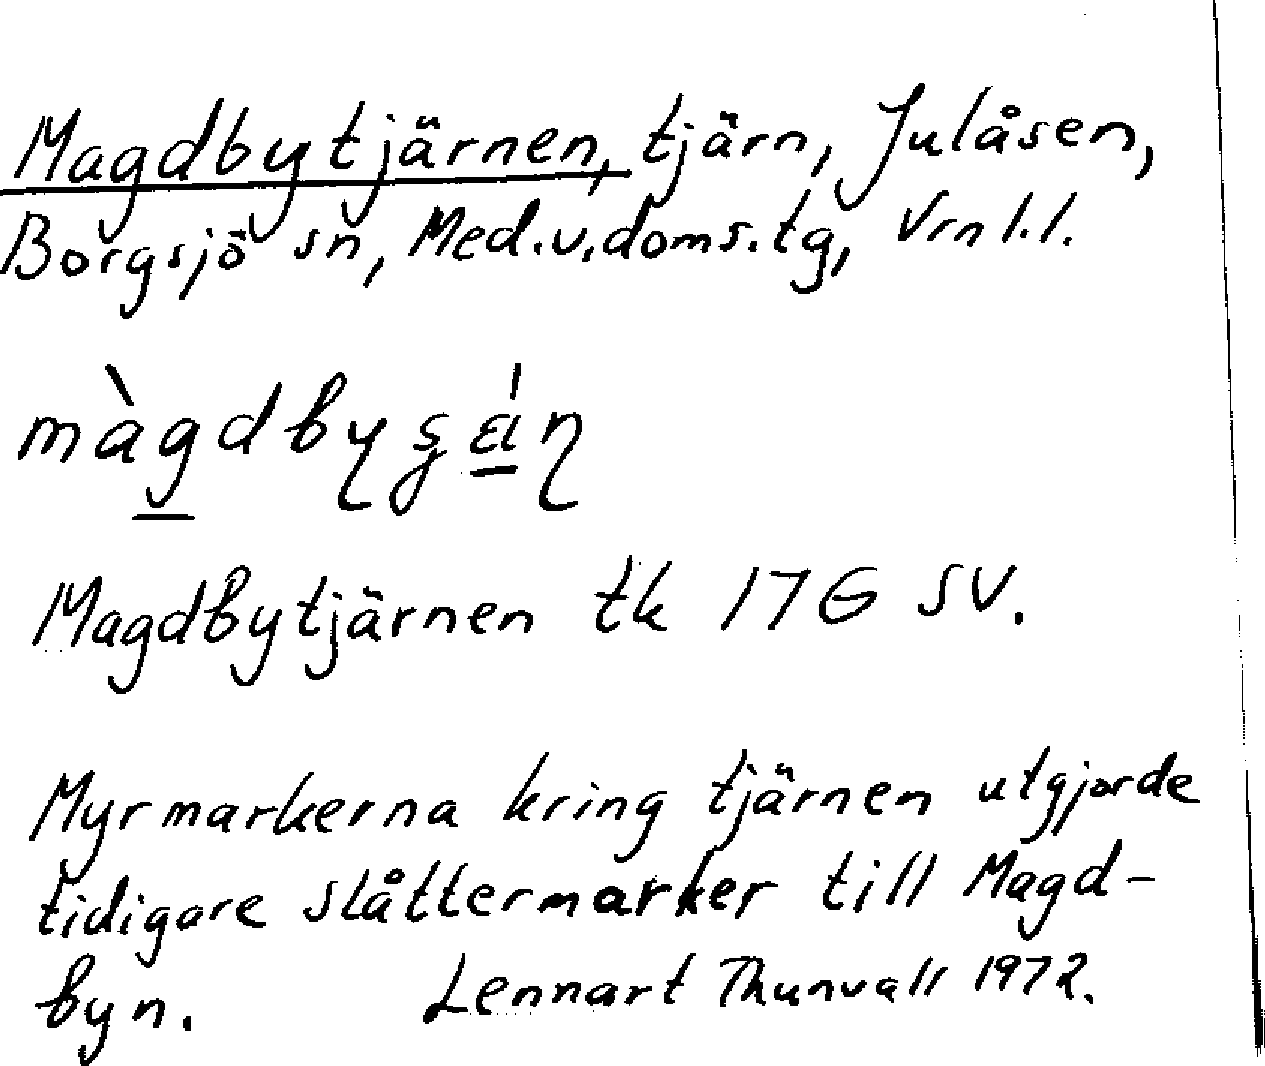 Magdbytjärnen, tjärn, Julåsen,
Borgsjö sn, Med.v.doms.tg, Vrnl.l.
Magdbytjärnen tk 17G SV.
Myrmarkerna kring tjärnen utgjorde
tidigare slåttermarker till Magd-
byn. Lennart Thunvall 1972.